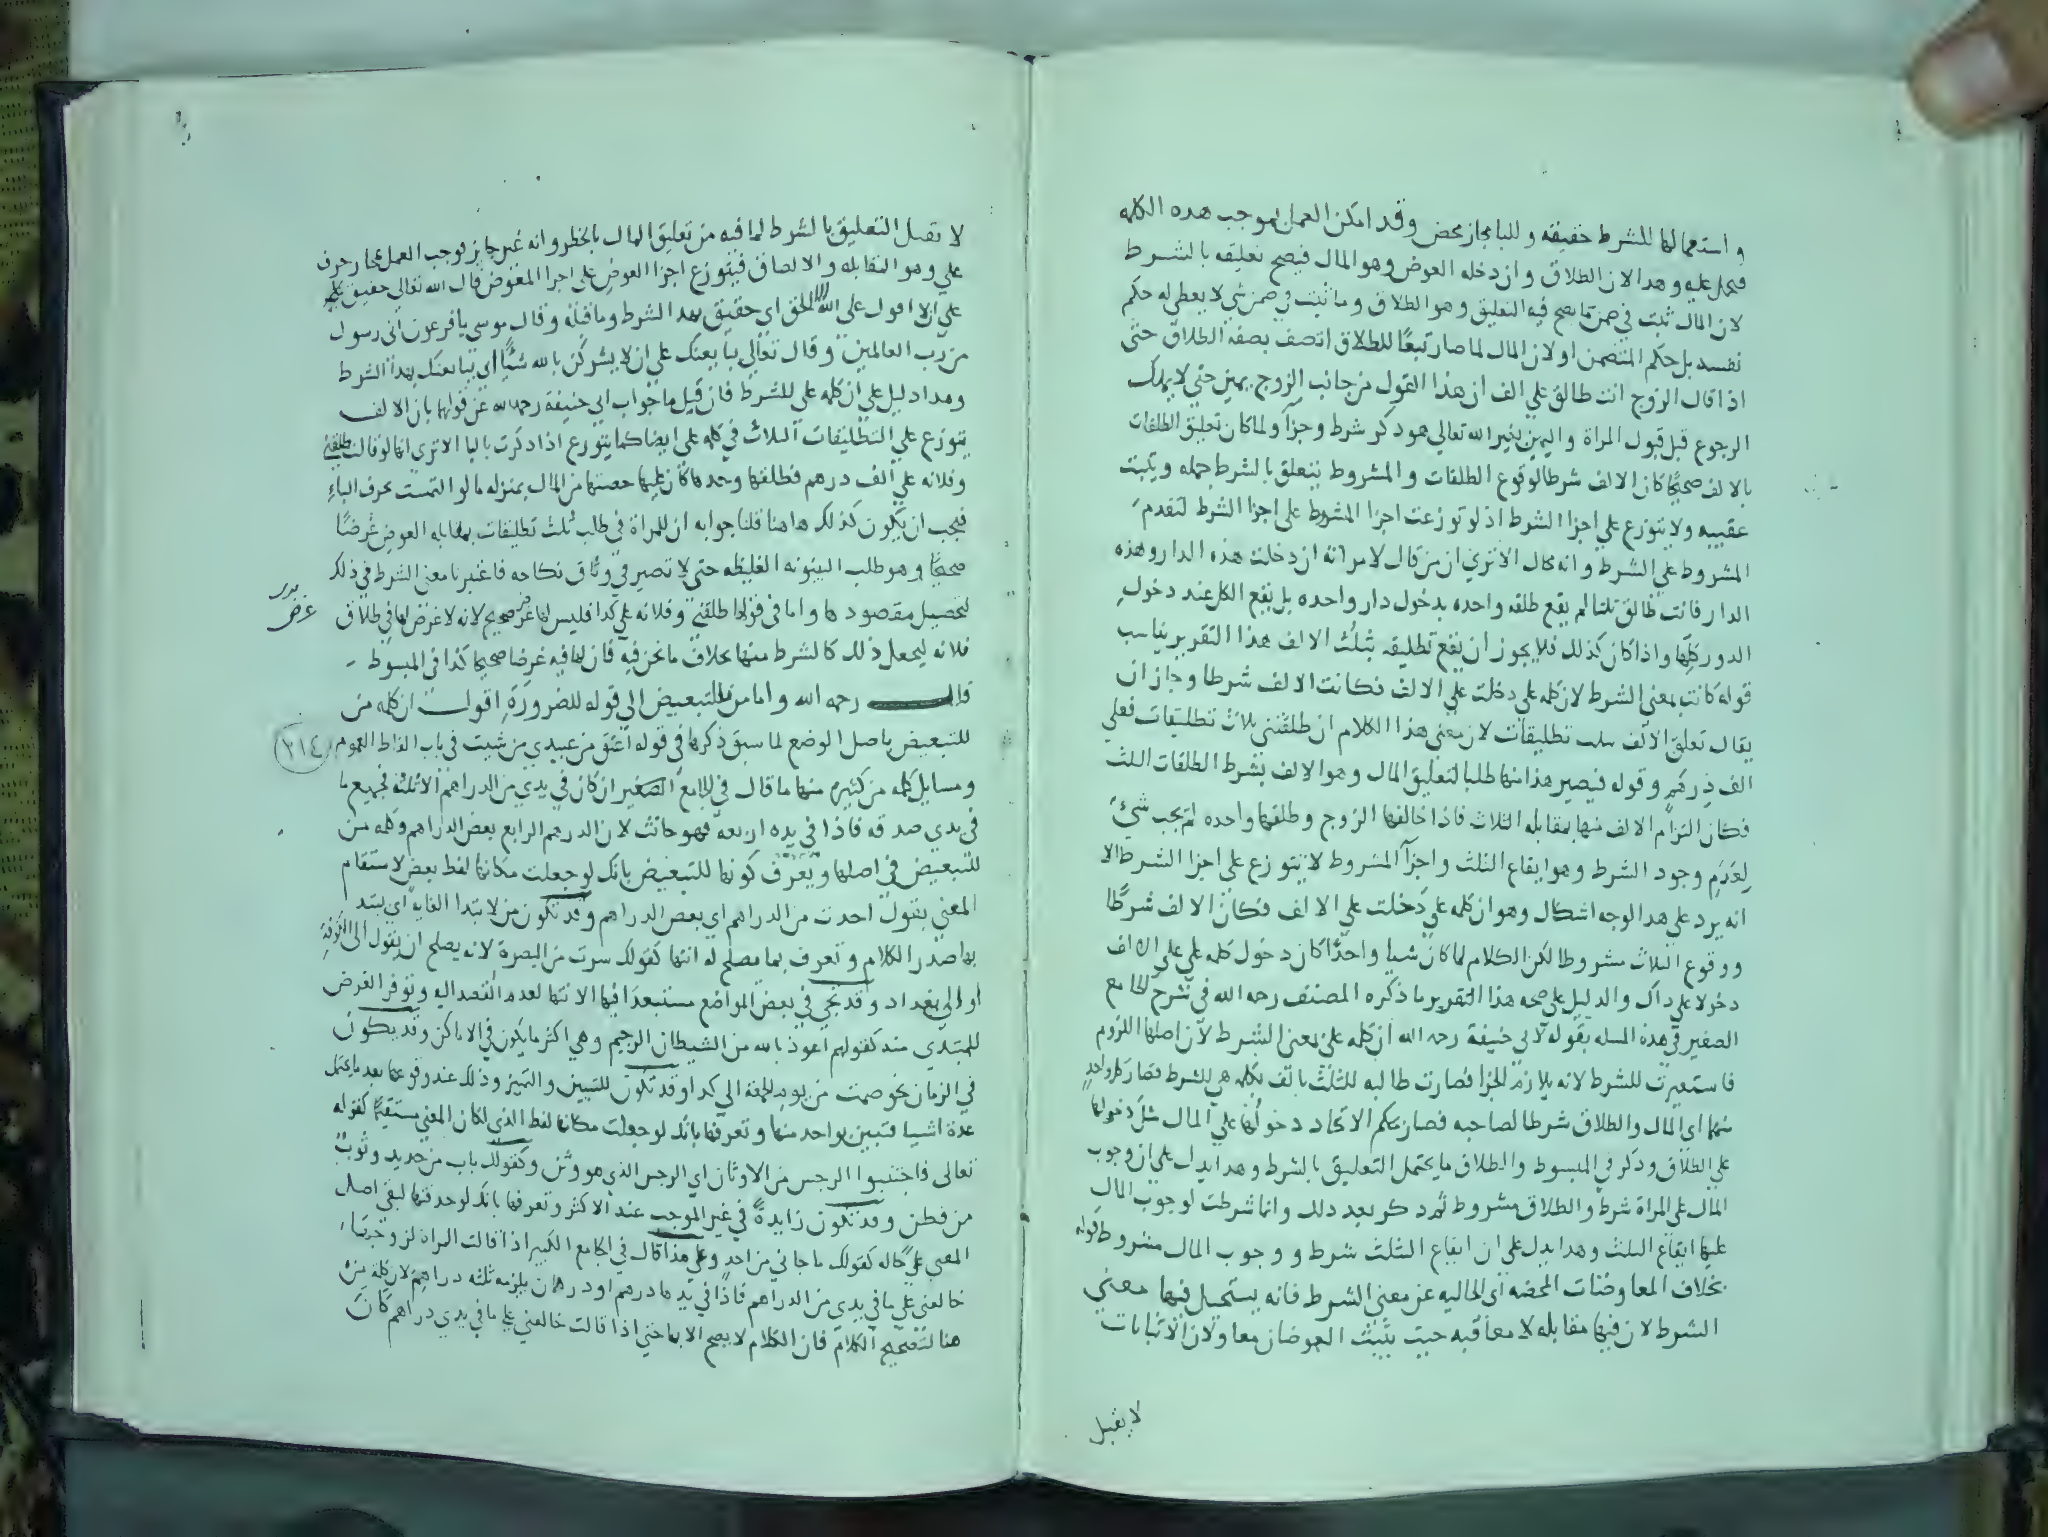 و استعمالها للشرط حقيقه و للبا مجاز محض و قد امكن العمل بموجب هذه الكلمه
فيحمل عليه و هدا لان الطلاق و ان دخله العوض و هو المال فيصح تعليقه بالشرط
لان المال ثبت في ضمن ما يصح فيه التعليق و هو الطلاق و ما ثبت في ضمن شي لا يعطي له حكم
نفسه بل حكم المتضمن او لان المال لما صار تبعًا للطلاق اتصف بصفة الطلاق حتى
اذا قال الزوج انت طالق علي الف ان هذا القول من جانب الزوج يمين حتي لا يملك
الرجوع قبل قبول المراة و اليمين بغير الله تعالي هو ذكر شرط و جزآ و لما كان تعليق الطلقات
بالالف صحيحًا كان الالف شرطا لوقوع الطلقات و المشروط يتعلق بالشرط جمله و يثبت
عقيبه و لا يتوزع علي اجزا الشرط اذ لو توزعت اجزا المشروط علي اجزا الشرط لتقدم
المشروط علي الشرط و انه محال الا تري ان من قال لامراته ان دخلت هذه الدار و هذه
الدار فانت طالق ثلثا لم يقع طلقه واحده بدخول دار واحده بل يقع الكل عند دخول
الدور كلها و اذا كان كذلك فلا يجوز ان يقع تطليقه بثلث الالف هذا التقرير يناسب
قوله كانت بمعني الشرط لان كلمه علي دخلت علي الالف فكانت الالف شرطا و جاز ان
يقال تعلق الالف بثلث تطليقات لان معني هذا الكلام ان طلقتني ثلاث تطليقات فعلي
الف درهم و قوله فيصير هذا منها طلبا لتعليق المال و هو الالف بشرط الطلقات الثلث
فكان التزام الالف منها بمقابله الثلاث فاذا خالفها الزوج و طلقها واحده لم يجب شيء
لعدم وجود الشرط و هو ايقاع الثلث و اجزآ المشروط لا يتوزع علي اجزا الشرط الا
انه يرد علي هدا الوجه اشكال و هو ان كلمه علي دخلت علي الالف فكان الالف شرطًا
و وقوع الثلاث مشروطا لكن الكلام لما كان شيا واحدًا كان دخول كلمه علي علي الالف
دخولا علي ذاك و الدليل علي صحه هذا التقرير ما ذكره المصنف رحه الله في شرح الجامع
الصغير في هذه المسله بقوله لابي حنيفة رحه الله ان كلمه علي بمعني الشرط لان اصلها اللزوم
فاستعيرت للشرط لانه يلازم الجزا فصارت طالبه للثلث بالف بكلمه هي للشرط فصار كل واحد
منهما اي المال و الطلاق شرطا لصاحبه فصار بحكم الاتحاد دخولها علي المال مثل دخولها
علي الطلاق و ذكر في المبسوط و الطلاق ما يحتمل التعليق بالشرط و هدا يدل علي ان وجوب
المال علي المراة شرط و الطلاق مشروط ثم ذكر بعد ذلك و انما شرطت لوجوب المال
عليها ايقاع الثلث و هدا يدل علي ان ايقاع الثلث شرط و وجوب المال مشروط قوله
بخلاف المعاوضات المحضه اي الخاليه عن معني الشرط فانه يستحيل فيها معني
الشرط لان فيها مقابله لا معاقبه حيث يثبت العوضان معا و لان الاثباتات
لا يقبل
لا تقبل التعليق بالشرط لما فيه من تعليق المال بالخطر و انه غير جايز فوجب العمل بمجاز حرف
علي و هو المقابله و الالصاق فيتوزع اجزا العوض علي اجزا المعوض قال الله تعالي حقيق علي
علي ان لا اقول علي الله الا الحق اي حقيق بهدا الشرط و ما قبله و قال موسي يا فرعون اني رسول
من رب العالمين و قال تعالي يبايعنك علي ان لا يشركن بالله شيئًا اي يبايعنك بهدا الشرط
و هدا دليل علي ان كلمه علي للشرط فان قيل ما جواب ابي حنيفة رحه الله عن قولهما بان الالف
يتوزع علي التطليقات الثلاث في كلمه علي ايضا كما يتوزع اذا ذكرت بالبا الا تري انها لو قالت طلقني
و فلانه علي الف درهم فطلقها وحدها كان عليها حصتها من المال بمنزله ما لو التمست بحرف الباء
فيجب ان يكون كذلك هاهنا قلنا جوابه ان للمراة في طلب ثلث تطليقات بمقابله العوض غرضًا
صحيحًا و هو طلب البينونه الغليظه حتي لا تصير في وثاق نكاحه فاعتبرنا معني الشرط في ذلك
لتحصيل مقصودها و اما في قولها طلقني و فلانه علي كذا فليس لها غرض صحيح لانه لا غرض لها في طلاق
غرض
فلانه ليجعل ذلك كالشرط منها بخلاف ما نحن فيه فان لها فيه غرضا صحيحا كذا في المبسوط
قال رحمه الله و اما من للتبعيض الي قوله للضرورة اقول ان كلمه من
للتبعيض باصل الوضع لما سبق ذكرها في قوله اعتق من عبيدي من شيت في باب الفاظ العموم
٣١٤
و مسايل كلمه من كثيره منها ما قال في الجامع الصغير ان كان في يدي من الدراهم الا ثلثه فجميع ما
في يدي صدقه فاذا في يده اربعه فهو حانث لان الدرهم الرابع بعض الدراهم و كلمه من
للتبعيض في اصلها و يعرف كونها للتبعيض بانك لو جعلت مكانها لفظ بعض لاستقام
المعني بقولك اخذت من الدراهم اي بعض الدراهم و قد تكون من لابتدا الغايه اي يبتد
بها صدر الكلام و تعرف بما يصلح له انتها كقولك سرت من البصرة لانه يصلح ان يقول الي الكوفة
او الي بغداد و قد تجي في بعض المواضع مستبعدا فيها الانتها لعدم القصد اليه و توفر الغرض
للمبتدي منه كقولهم اعوذ بالله من الشيطان الرجيم و هي اكثر ما يكون في الاماكن و قد يكون
في الزمان نحو صمت من يوم الجمعة الي كدا و قد تكون للتبيين و التميز و ذلك عند وقوعها بعد ما يحتمل
عدة اشيا فتبين بواحد منها و تعرفها بانك لو جعلت مكانها لفظ الذي لكان المعني مستقيمًا كقوله
تعالي فاجتنبوا الرجس من الاوثان اي الرجس الذي هو وثن و كقولك باب من حديد و ثوب
من قطن و قد تكون زايدةً في غير الموجب عند الاكثر و تعرفها بانك لو حدفتها لبقي اصل
المعني علي حاله كقولك ما جاني من احد و علي هذا قال في الجامع الكبير اذا قالت المراة لزوجها
خالعني علي ما في يدي من الدراهم فاذا في يدها درهم او درهمان يلزمه ثلثه دراهم لان كلمه من
هنا لتصحيح الكلام فان الكلام لا يصح الا بها حتي اذا قالت خالعني علي ما في يدي دراهم كان